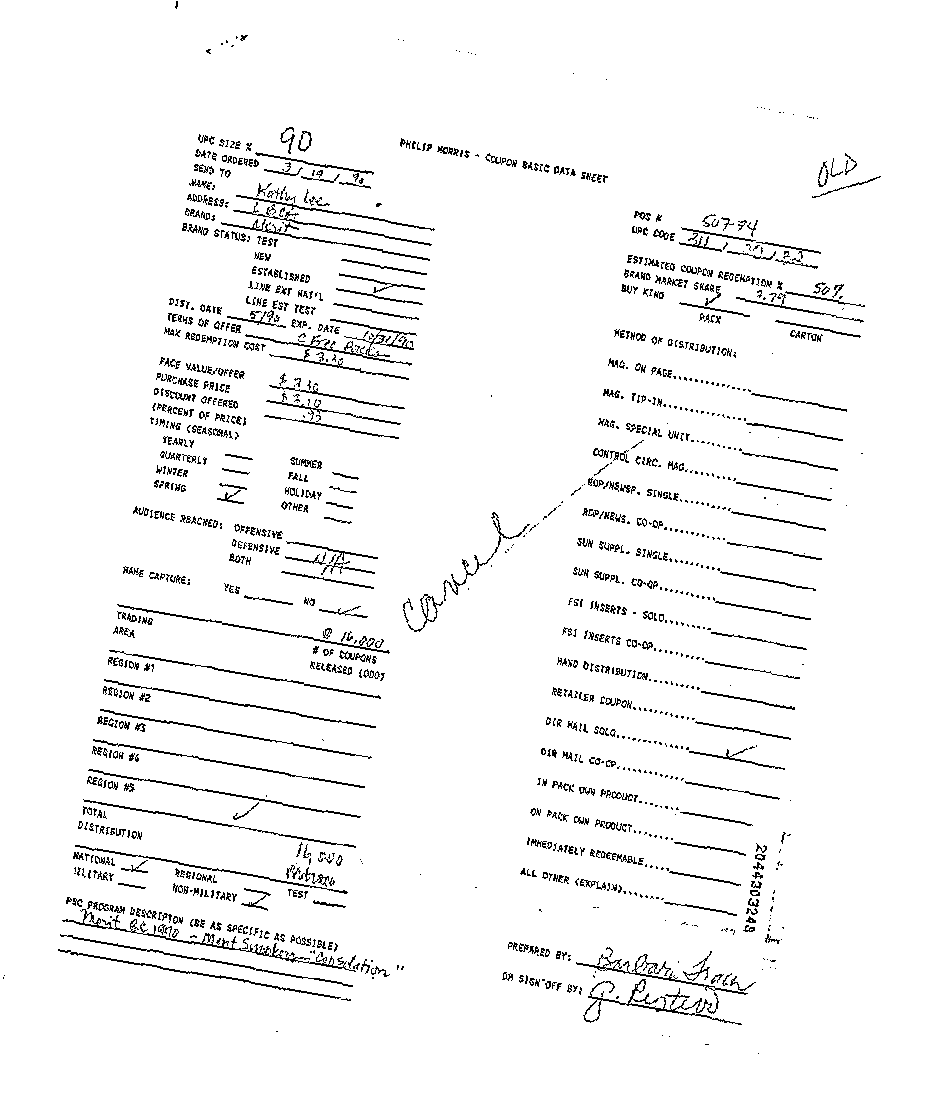 PHILIP MORRIS - COUPON BASIC DATA SHEET
OLD
UPC SIZE % 90
DATE ORDERED 3/19/90
SEND TO
NAME: Kathy Lee
ADDRESS: L BCo
BRAND: Merit
BRAND STATUS: TEST
NEW
ESTABLISHED ✓
LINE EXT NAT'L
LINE EST TEST
DIST. DATE 5/90 EXP. DATE 10/31/90
TERMS OF OFFER 2 Free Packs
MAX REDEMPTION COST $ 3.30
FACE VALUE/OFFER
PURCHASE PRICE $ 3.30
DISCOUNT OFFERED $ 3.10
(PERCENT OF PRICE) .93
TIMING (SEASONAL)
YEARLY
QUARTERLY
WINTER
SPRING ✓
SUMMER
FALL
HOLIDAY
OTHER
AUDIENCE REACHED: OFFENSIVE
DEFENSIVE N/A
BOTH
NAME CAPTURE: YES NO ✓
TRADING
AREA
@ 16,000
# OF COUPONS
RELEASED (000)
REGION #1
REGION #2
REGION #3
REGION #4
REGION #5
✓
TOTAL
DISTRIBUTION
16,000
NATIONAL ✓ REGIONAL TEST
MILITARY NON-MILITARY ✓
PSC PROGRAM DESCRIPTION (BE AS SPECIFIC AS POSSIBLE)
Merit 1990 - Merit Smokers "Consolation"
Cancel
POS # 507-74
UPC CODE
ESTIMATED COUPON REDEMPTION % 50%
BRAND MARKET SHARE 3.79
BUY KIND ✓
PACK CARTON
METHOD OF DISTRIBUTION:
MAG. ON PAGE
MAG. TIP-IN
MAG. SPECIAL UNIT
CONTROL CIRC. MAG.
ROP/NEWSP. SINGLE
ROP/NEWS. CO-OP
SUN SUPPL. SINGLE
SUN SUPPL. CO-OP
FSI INSERTS - SOLO
FSI INSERTS CO-OP
HAND DISTRIBUTION
RETAILER COUPON
DIR MAIL SOLO ✓
DIR MAIL CO-OP
IN PACK OWN PRODUCT
ON PACK OWN PRODUCT
IMMEDIATELY REDEEMABLE
ALL OTHER (EXPLAIN)
2044303248
PREPARED BY: Barbara
DM SIGN OFF BY: G.